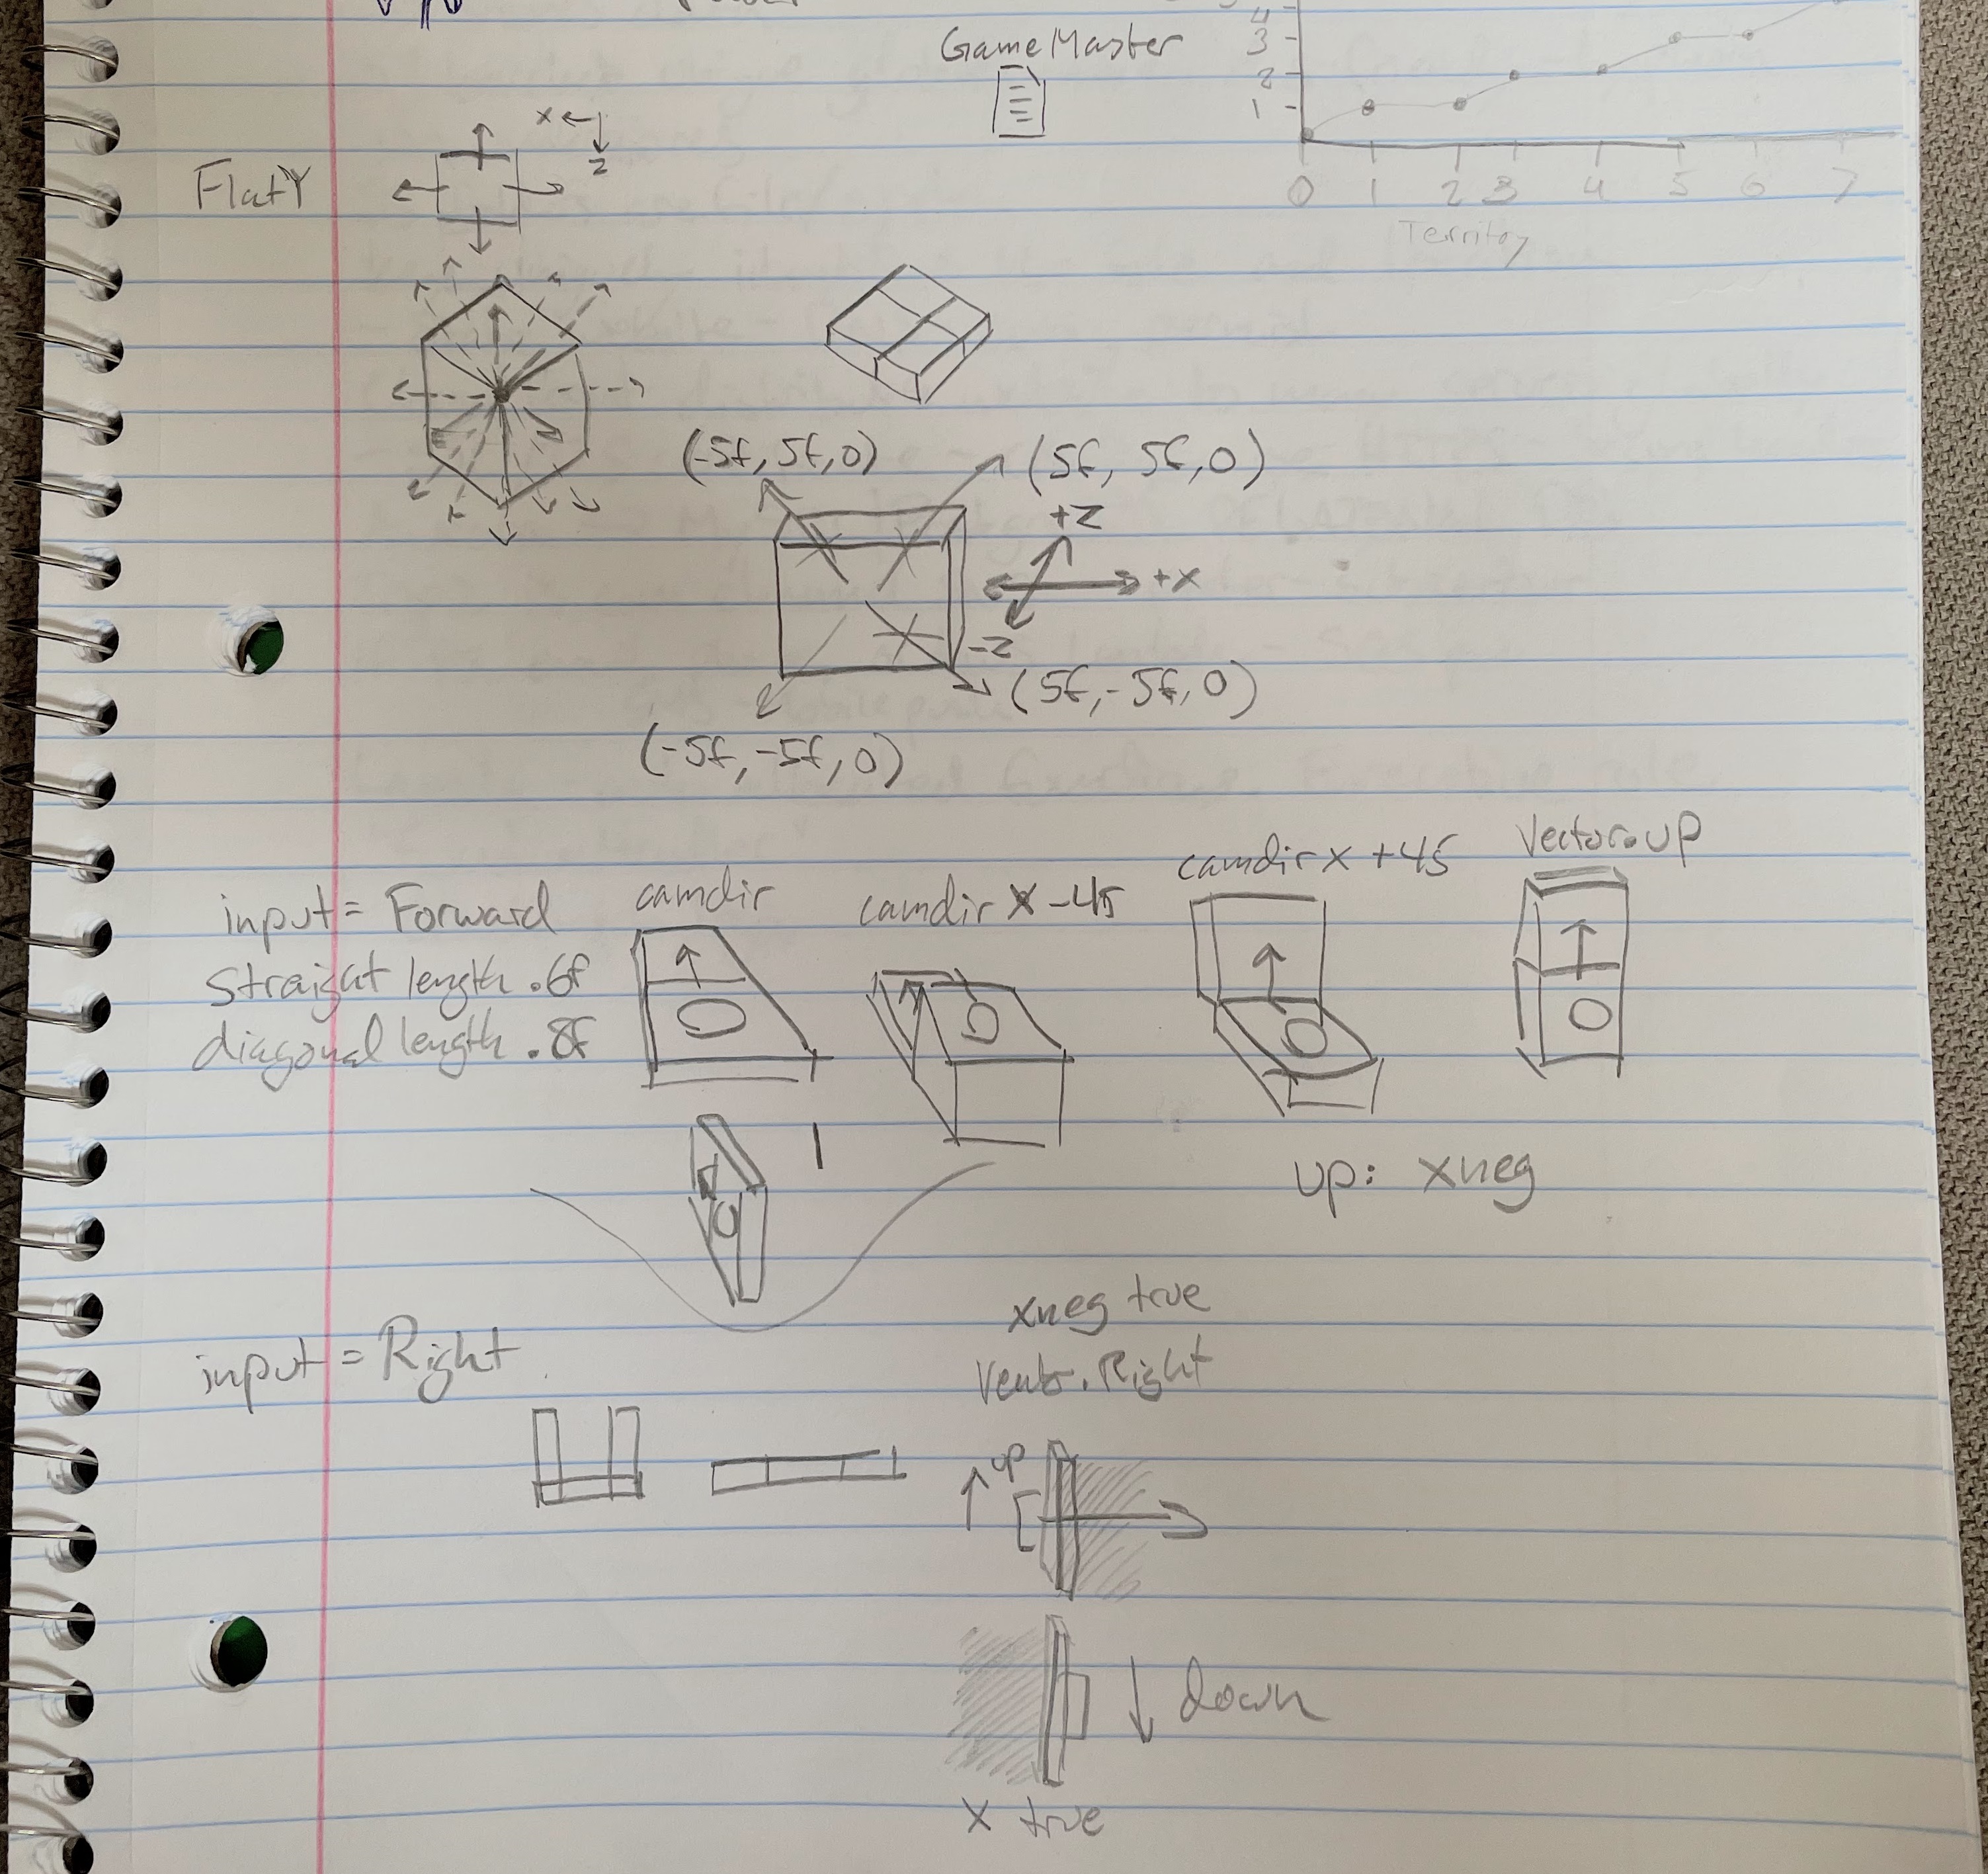 GameMaster
4
3
2
1
0 1 2 3 4 5 6 7
Territoy
x
z
FlatY
(-5f, 5f, 0)
(5f, 5f, 0)
+Z
+X
-Z
(5f, -5f, 0)
(-5f, -5f, 0)
input = Forward
straight length .6f
diagonal length .8f
camdir
camdir X -45
camdir x +45
Vector.up
up: xneg
input = Right
xneg true
Vector.Right
up
down
X true